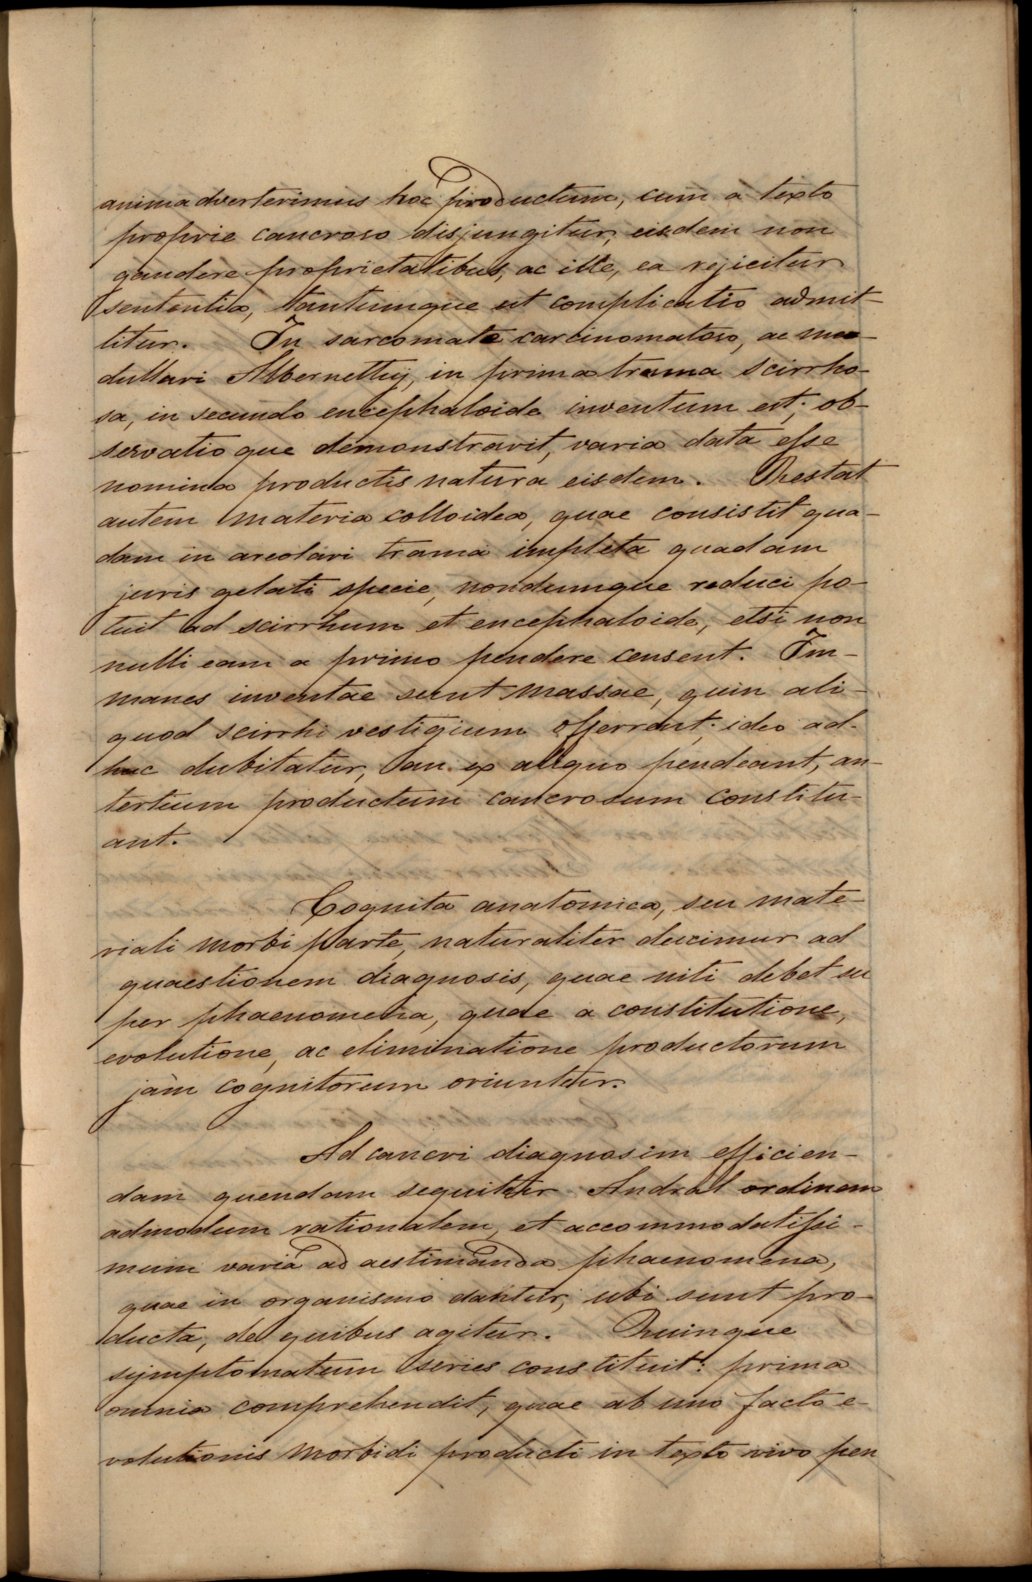 animadverterimus hoc productum, cum a texto
proprie cancroso disjungitur, eisdem non
gaudere proprietatibus, ac ille, ea rejicitur
sententia, tantumque ut complicatio admit-
titur. In sarcomate carcinomatoso, ac me-
dullari Abernethij, in prima trama scirrho-
sa, in secundo encephaloide inventum est; ob-
servatioque demonstravit, varia data esse
nomina productis natura eisdem. Restat
autem materia colloidea, quae consistit qua-
dam in areolari trama impleta quadam
juris gelati specie, nondumque reduci po-
tuit ad scirrhum et encephaloide, etsi non
nulli eam a primo pendere censent. Im-
manes inventae sunt massae, quin ali-
quod scirrhi vestigium offerrent; ideo ad-
huc dubitatur, an ex aliquo pendeant, an
tertium productum cancrosum constitu-
ant.
Cognita anatomica, seu mate-
riali morbi parte, naturaliter ducimur ad
quaestionem diagnosis, quae niti debet su
per phaenomena, quae a constitutione,
evolutione, ac eliminatione productorum
jàm cognitorum oriuntur.
Ad cancri diagnosim efficien-
dam quendam sequitur Andral ordinem
admodum rationalem, et accommodatissi-
mum varia ad aestimanda phaenomena,
quae in organismo dantur, ubi sunt pro-
ducta, de quibus agitur. Quinque
symptomatum series constituit: prima
omnia comprehendit, quae ab uno facto e-
volutionis morbidi producti in texto vivo pen